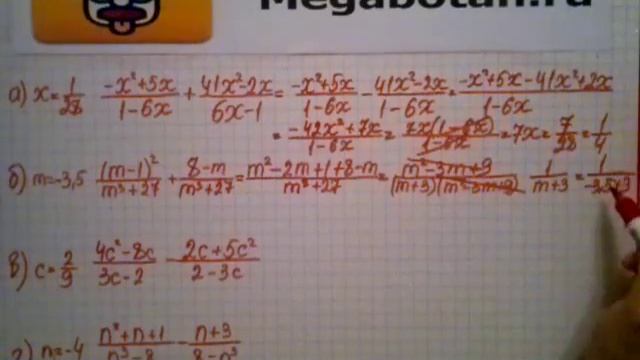 Megabotan.ru
а) x=1/28 (-x²+5x)/(1-6x) + (41x²-2x)/(6x-1) = (-x²+5x)/(1-6x) - (41x²-2x)/(1-6x) = (-x²+5x-41x²+2x)/(1-6x)
= (-42x²+7x)/(1-6x) = (7x(1-6x))/(1-6x) = 7x = 7/28 = 1/4
б) m=-3,5 (m-1)²/(m³+27) + (8-m)/(m³+27) = (m²-2m+1+8-m)/(m³+27) = (m²-3m+9)/((m+3)(m²-3m+9)) 1/(m+3) = 1/(-3,5+3)
в) c=2/9 (4c²-8c)/(3c-2) - (2c+5c²)/(2-3c)
г) n=-4 (n²+n+1)/(n³-8) - (n+3)/(8-n³)